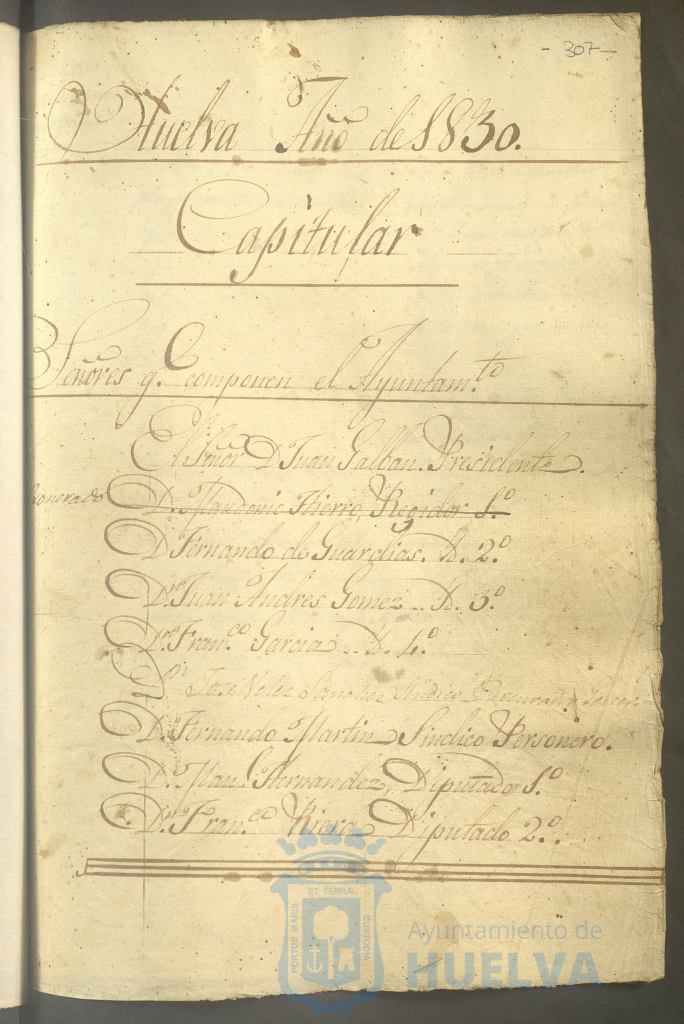 - 307 -
Huelva Año de 1830.
Capitular
Señores q.e componen el Ayuntam.to
El Señor D Juan Galban. Presidente.
onerado D. Mauricio Hierro, Regidor 1.º
D Fernando de Guardias. Yd. 2.º
D.n Juan Andres Gomez.. Yd. 3.º
D.n Fran.co Garcia.. Yd. 4.º
D.n Jose Velez Sanchez Sindico Procurador
D. Fernando Martin Sindico Personero.
D. Man.l Hernandez, Diputado 1.º
D.n Fran.co Riera Diputado 2.º.
ET TERRÆ
PORTUS MARIS
CUSTODIA
Ayuntamiento de
HUELVA